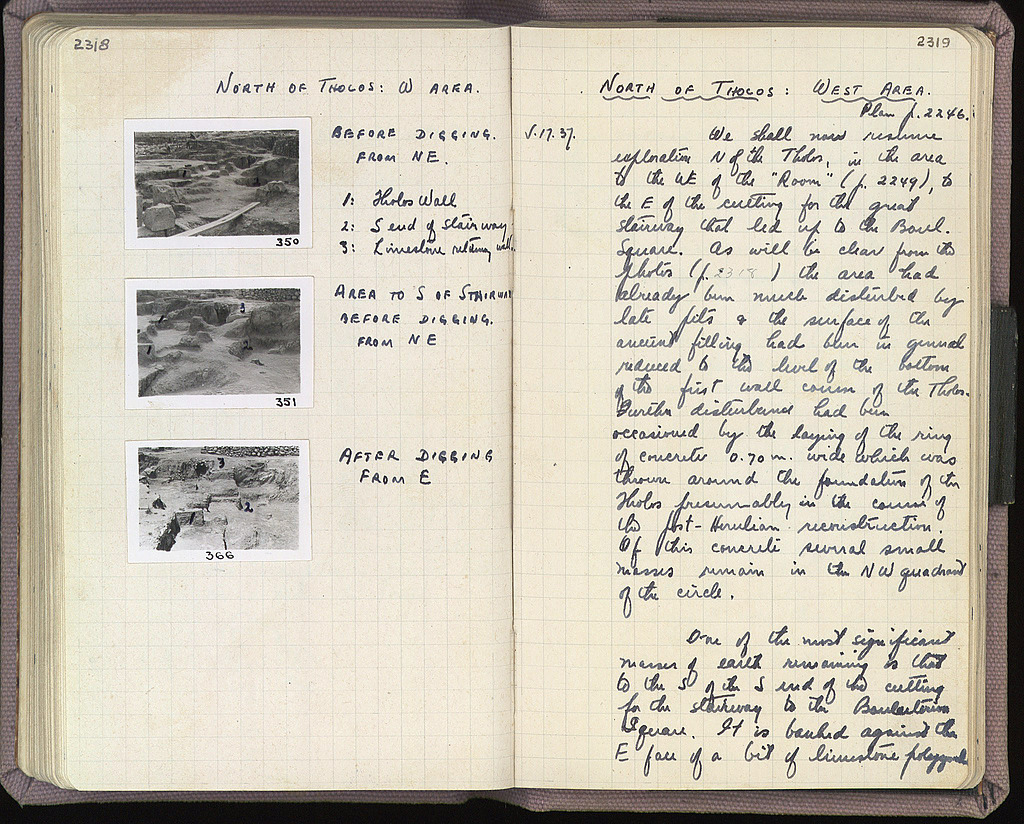 2318
NORTH OF THOLOS: W AREA.
BEFORE DIGGING.
FROM NE.
1: Tholos Wall
2: S end of Stairway
3: Limestone retaining wall.
350
AREA TO S OF STAIRWAY
BEFORE DIGGING.
FROM NE
351
AFTER DIGGING
FROM E
366
2319
NORTH OF THOLOS: WEST AREA.
Plan p. 2246.
V.17.37.
We shall now resume
exploration N of the Tholos, in the area
to the WE of the "Room" (p. 2249), to
the E of the cutting for the great
stairway that led up to the Boul.
Square. As will be clear from the
photos (p. 2318) the area had
already been much disturbed by
late pits & the surface of the
ancient filling had been in general
reduced to the level of the bottom
of the first wall course of the Tholos.
Further disturbance had been
occasioned by the laying of the ring
of concrete 0.70 m. wide which was
thrown around the foundation of the
Tholos presumably in the course of
the post-Herulian reconstruction.
Of this concrete several small
masses remain in the NW quadrant
of the circle.
One of the most significant
masses of earth remaining is that
to the S of the S end of the cutting
for the stairway to the Bouleuterion
Square. It is banked against the
E face of a bit of limestone polygonal